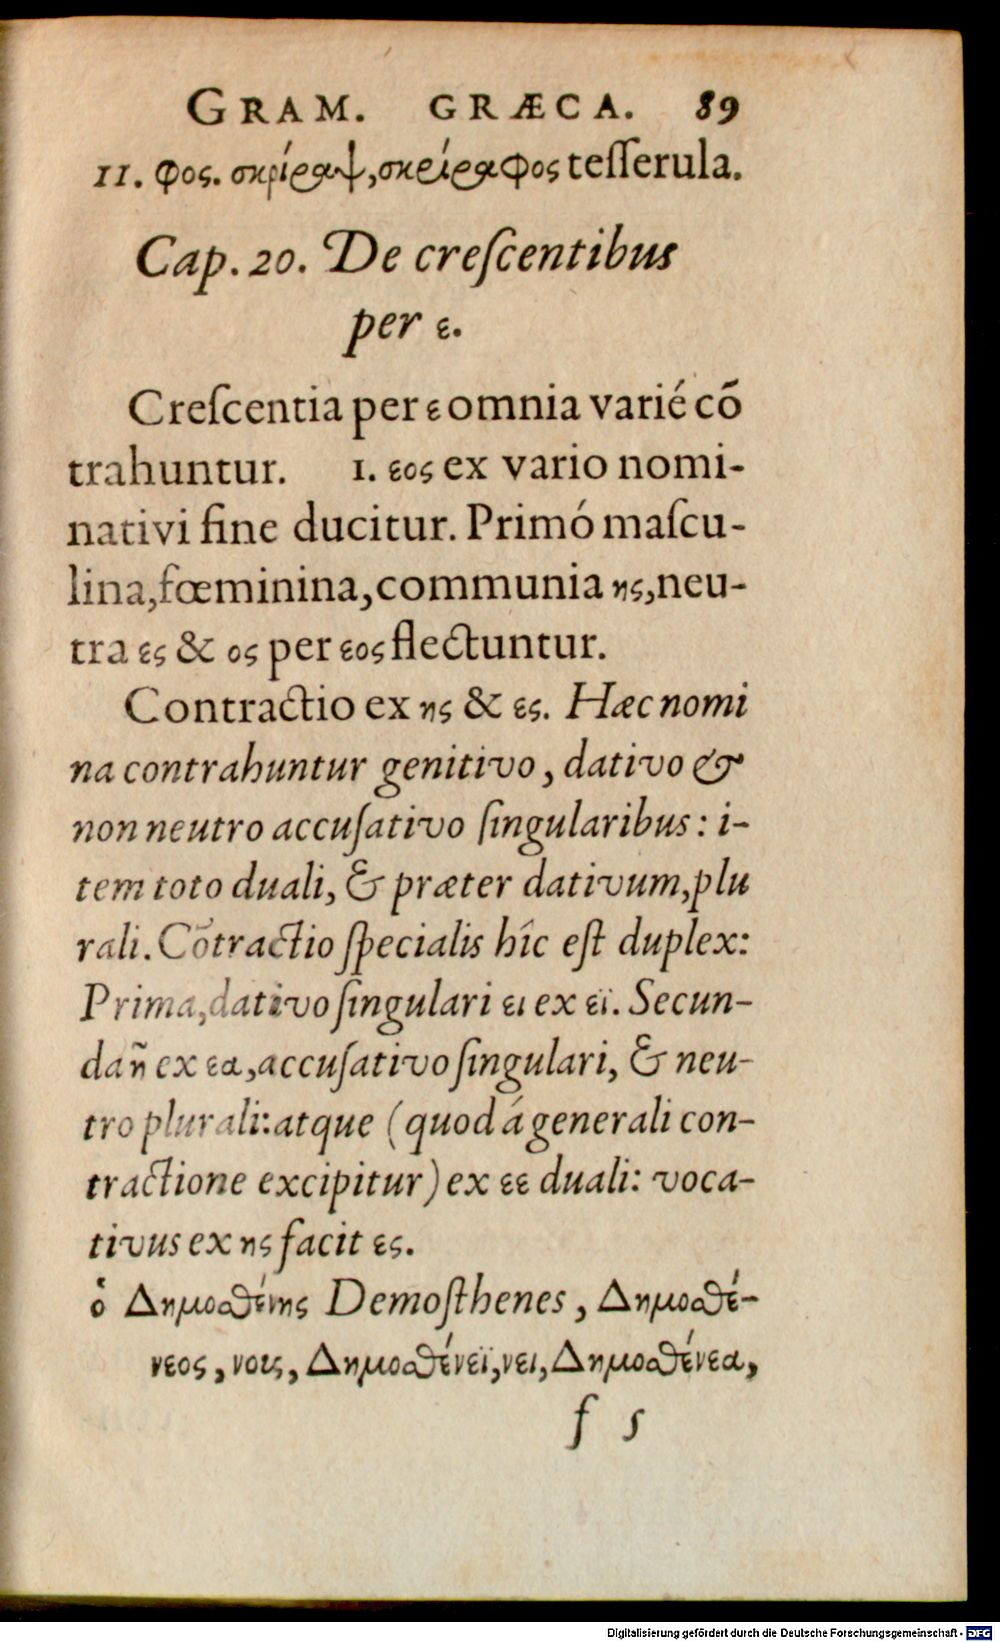 GRAM. GRÆCA. 89
11. φος. σκίραψ, σκείραφος teſſerula.
Cap. 20. De creſcentibus
per ε.
Creſcentia per ε omnia varié cō
trahuntur. 1. εος ex vario nomi-
nativi fine ducitur. Primó maſcu-
lina, fœminina, communia ης, neu-
tra ες & ος per εος flectuntur.
Contractio ex ης & ες. Hæc nomi
na contrahuntur genitivo, dativo &
non neutro accuſativo ſingularibus: i-
tem toto duali, & præter dativum, plu
rali. Cōtractio ſpecialis hîc eſt duplex:
Prima, dativo ſingulari ει ex εϊ. Secun-
da η̃ ex εα, accuſativo ſingulari, & neu-
tro plurali: atque (quod á generali con-
tractione excipitur) ex εε duali: voca-
tivus ex ης facit ες.
ὁ Δημοσθένης Demoſthenes, Δημοσθέ-
νεος, νους, Δημοσθένεϊ, νει, Δημοσθένεα,
f 5
Digitalisierung gefördert durch die Deutsche Forschungsgemeinschaft - DFG